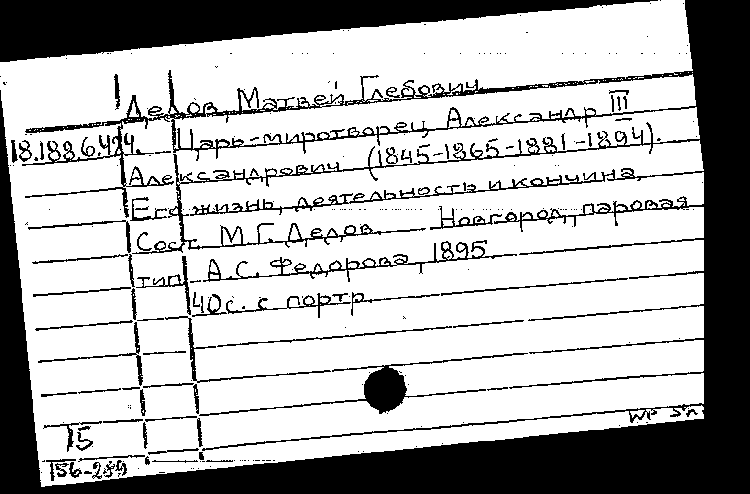 Дедов, Матвей Глебович
18.188.6.424. Царь-миротворец Александр III
Александрович (1845-1865-1881-1894).
Его жизнь, деятельность и кончина.
Сост. М.Г. Дедов. Новгород, паровая
тип. А.С. Федорова, 1895.
40с. с портр.
15
156-289